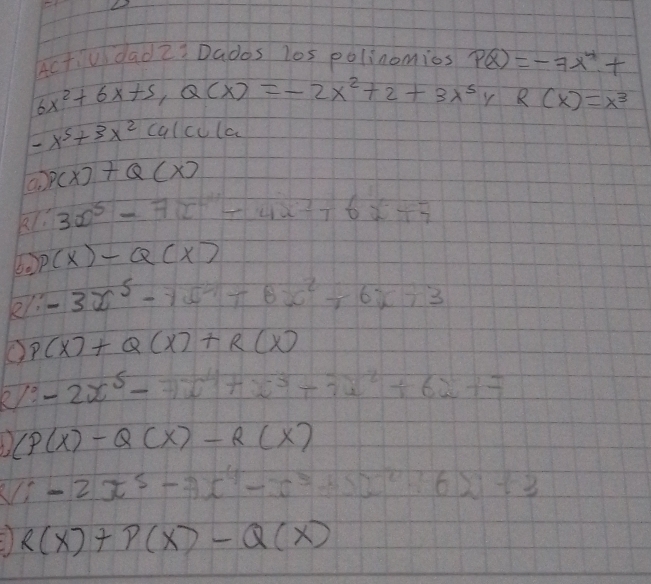 Actividad 2: Dados los polinomios P(x) = -7x⁴ +
6x² + 6x + 5, Q(x) = -2x² + 2 + 3x⁵ y R(x) = x³
- x⁵ + 3x² calcula
a) P(x) + Q(x)
R/: 3x⁵ - 7x⁴ - 4x² + 6x + 7
b) P(x) - Q(x)
R/: -3x⁵ - 7x⁴ + 8x² + 6x + 3
c) P(x) + Q(x) + R(x)
R/: -2x⁵ - 7x⁴ + x³ + 7x² + 6x + 7
(P(x) - Q(x) - R(x)
R/: -2x⁵ - 7x⁴ - x³ + 5x² + 6x + 3
R(x) + P(x) - Q(x)